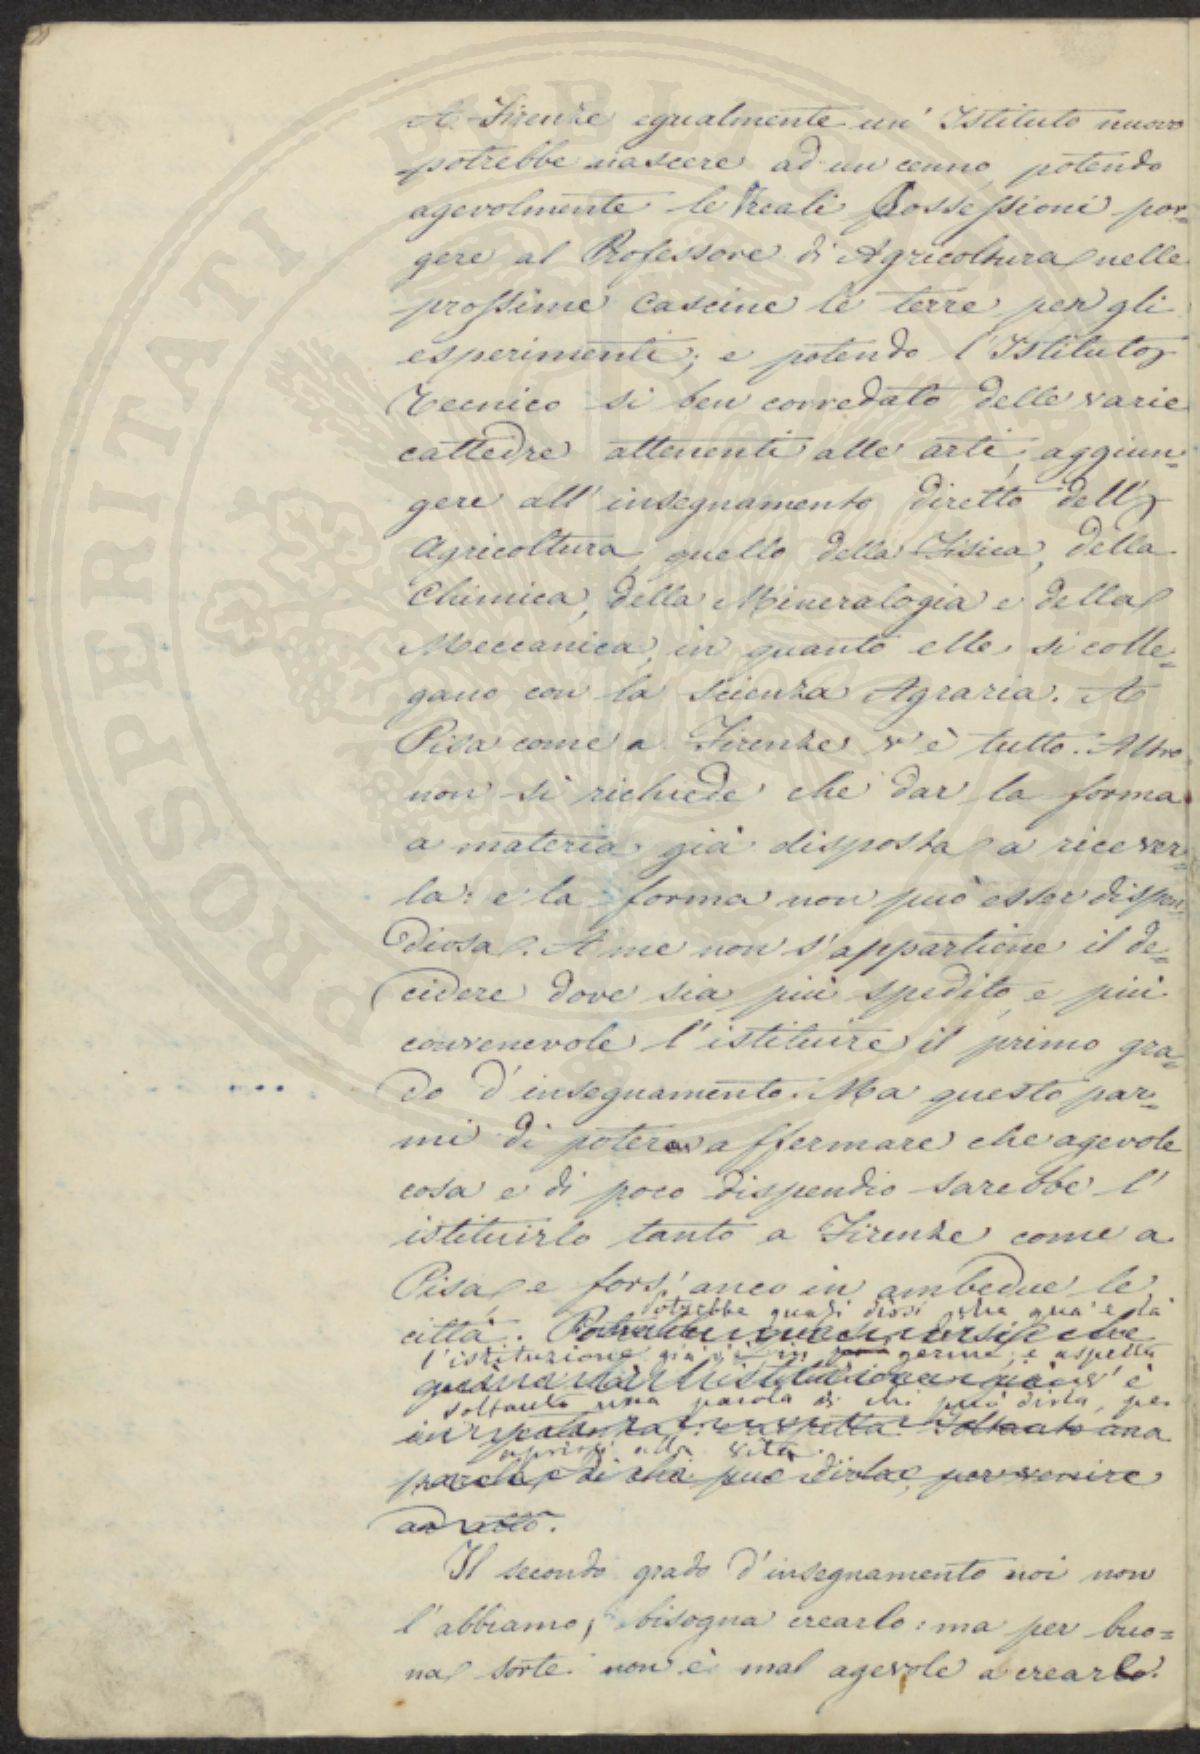 A Firenze egualmente un' Istituto nuovo
potrebbe nascere ad un cenno, potendo
agevolmente le Reali Possessioni por=
gere al Professore di Agricoltura nelle
prossime Cascine le terre per gli
esperimenti; e potendo l'Istituto
Tecnico sì ben corredato delle varie
cattedre attenenti alle arti, aggiun=
gere all'insegnamento diretto dell'
Agricoltura, quello della Fisica, della
Chimica, della Mineralogia e della
Meccanica, in quanto elle si colle=
gano con la Scienza Agraria. A
Pisa come a Firenze v'è tutto. Altro
non si richiede che dar la forma
a materia già disposta a ricever=
la: e la forma non può esser dispen=
diosa. A me non s'appartiene il de=
cidere dove sia più spedito e più
convenevole l'istituire il primo gra=
do d'insegnamento. Ma questo par=
mi di poter affermare che agevole
cosa e di poco dispendio sarebbe l'
istituirlo tanto a Firenze come a
Pisa e fors'anco in ambedue le
potrebbe quasi dirsi che qua e là
città. Potrebbe quasi dirsi che
l'istituzione già v'è in germe, e aspetta
l'istituzione v'è
soltanto una parola di chi può dirla, per
in potenza, e aspetta soltanto una
aprirsi alla vita.
parola di chi può dirla, per venire
ad atto.
Il secondo grado d'insegnamento noi non
l'abbiamo; bisogna crearlo: ma per buo=
na sorte non è mal agevole a crearlo.
PROSPERITATI PUBLICAE